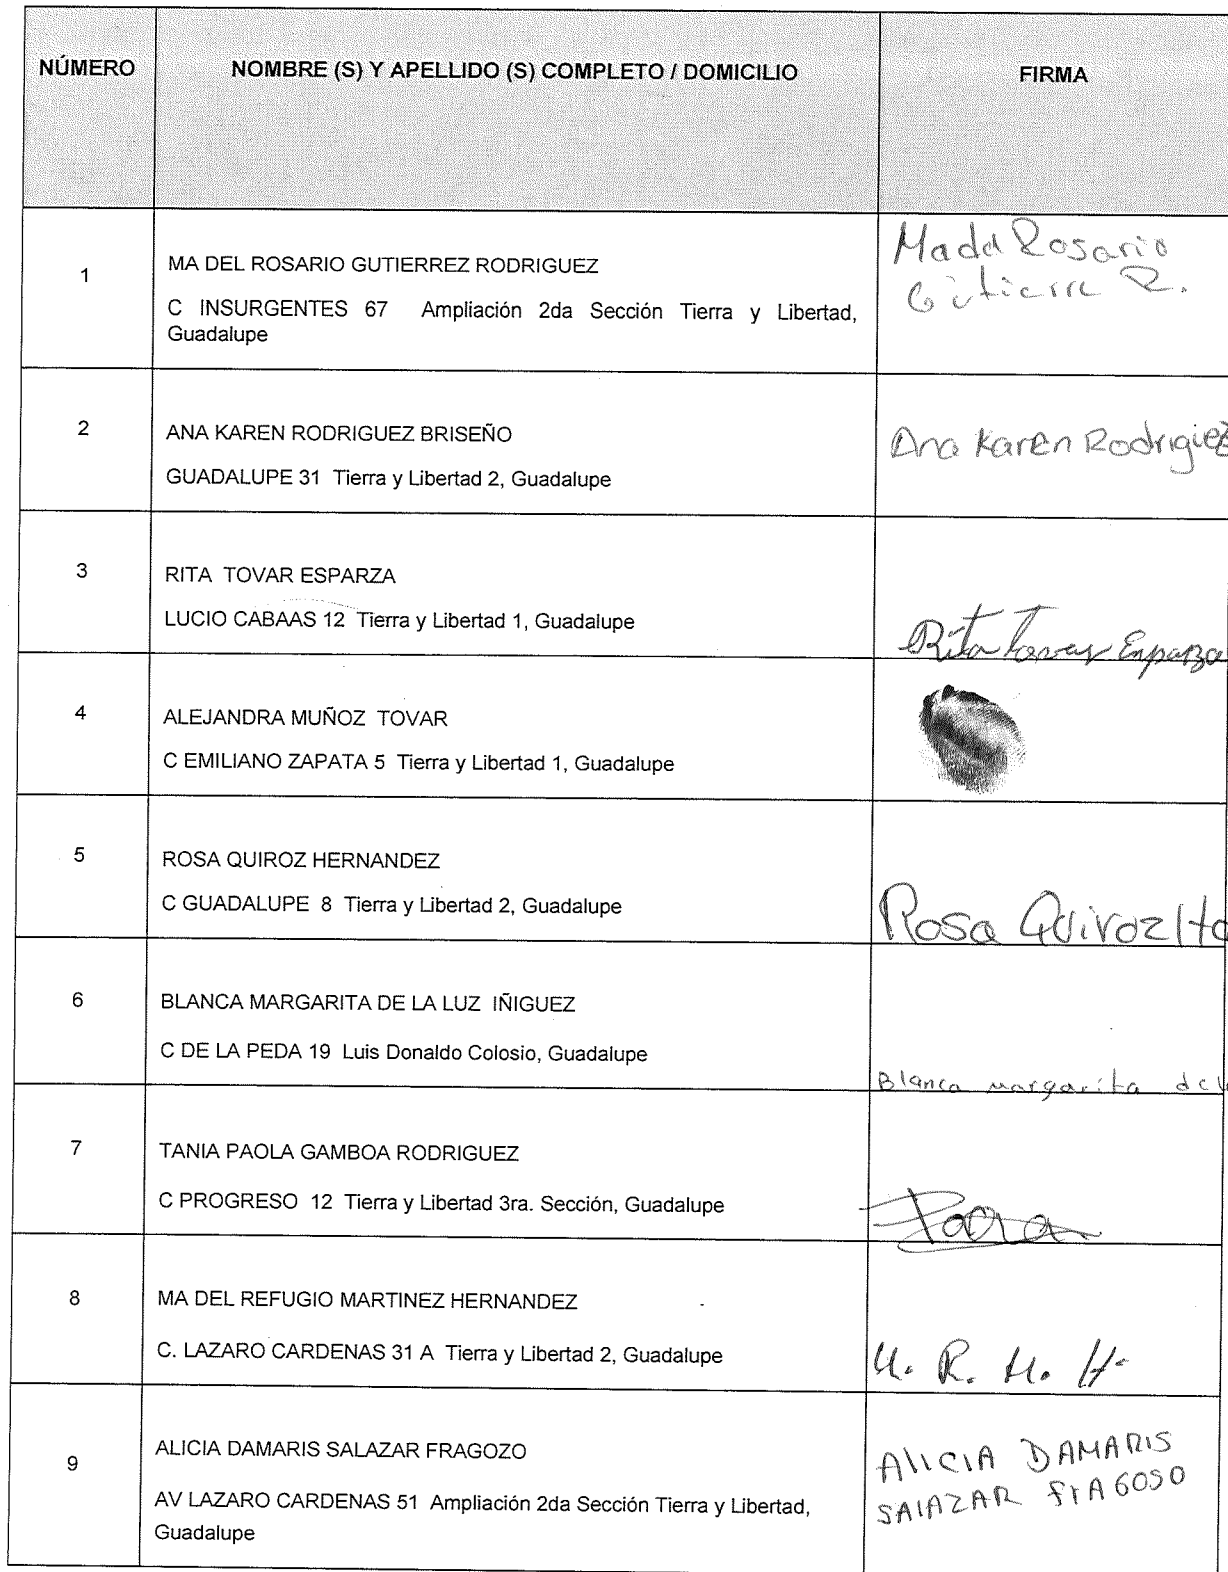 NÚMERO NOMBRE (S) Y APELLIDO (S) COMPLETO / DOMICILIO FIRMA
1 MA DEL ROSARIO GUTIERREZ RODRIGUEZ
C INSURGENTES 67 Ampliación 2da Sección Tierra y Libertad,
Guadalupe
Ma del Rosario
Gutierre R.
2 ANA KAREN RODRIGUEZ BRISEÑO
GUADALUPE 31 Tierra y Libertad 2, Guadalupe
Ana Karen Rodrigiez
3 RITA TOVAR ESPARZA
LUCIO CABAAS 12 Tierra y Libertad 1, Guadalupe
Rita Tovar Esparza
4 ALEJANDRA MUÑOZ TOVAR
C EMILIANO ZAPATA 5 Tierra y Libertad 1, Guadalupe
5 ROSA QUIROZ HERNANDEZ
C GUADALUPE 8 Tierra y Libertad 2, Guadalupe
Rosa Quiroz
6 BLANCA MARGARITA DE LA LUZ IÑIGUEZ
C DE LA PEDA 19 Luis Donaldo Colosio, Guadalupe
Blanca margarita
7 TANIA PAOLA GAMBOA RODRIGUEZ
C PROGRESO 12 Tierra y Libertad 3ra. Sección, Guadalupe
Paola
8 MA DEL REFUGIO MARTINEZ HERNANDEZ
C. LAZARO CARDENAS 31 A Tierra y Libertad 2, Guadalupe
M. R. M. H.
9 ALICIA DAMARIS SALAZAR FRAGOZO
AV LAZARO CARDENAS 51 Ampliación 2da Sección Tierra y Libertad,
Guadalupe
AlICIA DAMARIS
SAlAZAR frAGOSO